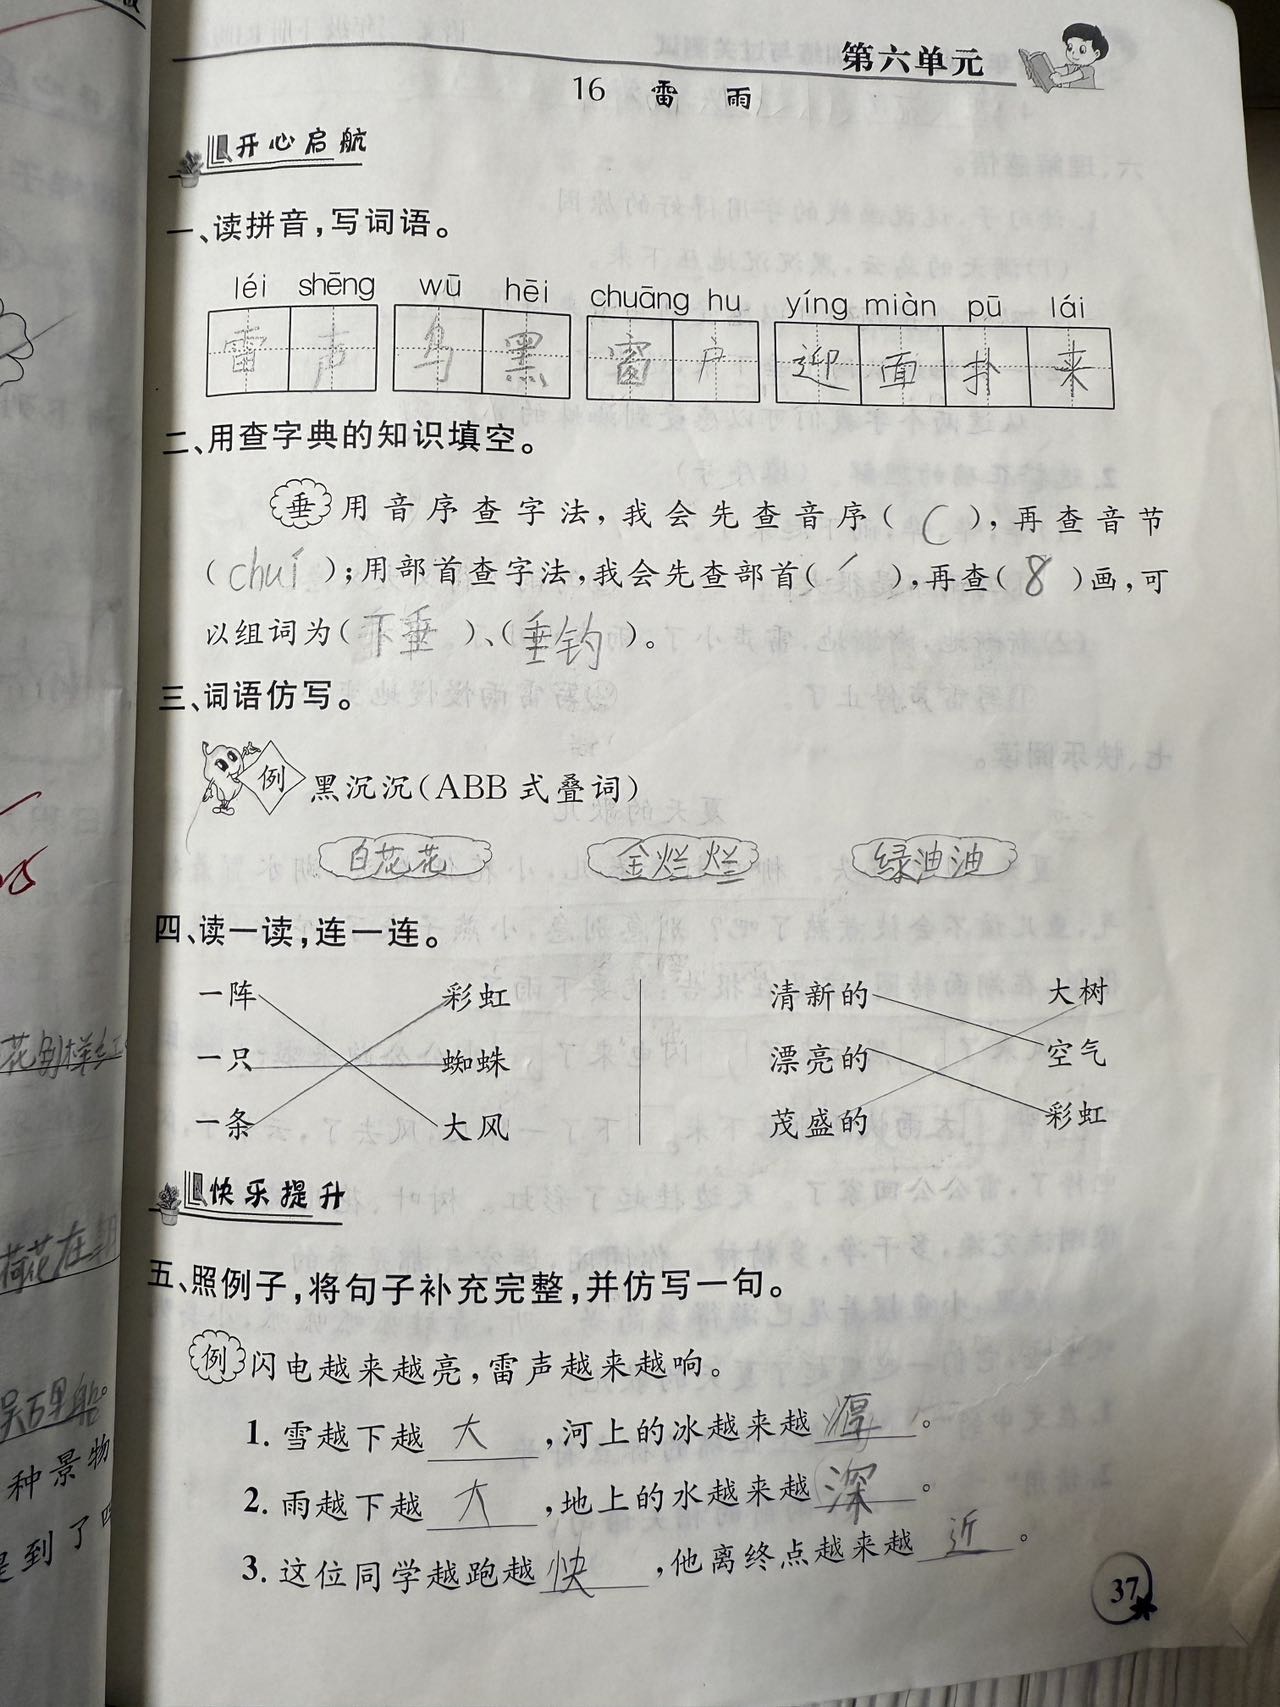 第六单元
16 雷 雨
开心启航
一、读拼音,写词语。
léi shēng wū hēi chuāng hu yíng miàn pū lái
雷声 乌黑 窗户 迎面扑来
二、用查字典的知识填空。
垂 用音序查字法,我会先查音序( C ),再查音节
( chuí );用部首查字法,我会先查部首( 丿 ),再查( 8 )画,可
以组词为( 下垂 )、( 垂钓 )。
三、词语仿写。
例 黑沉沉(ABB式叠词)
白花花 金烂烂 绿油油
四、读一读,连一连。
一阵 彩虹 清新的 大树
一只 蜘蛛 漂亮的 空气
一条 大风 茂盛的 彩虹
快乐提升
五、照例子,将句子补充完整,并仿写一句。
例 闪电越来越亮,雷声越来越响。
1. 雪越下越 大 ,河上的冰越来越 厚 。
2. 雨越下越 大 ,地上的水越来越 深 。
3. 这位同学越跑越 快 ,他离终点越来越 近 。
37
荷花在
种景物
是到了